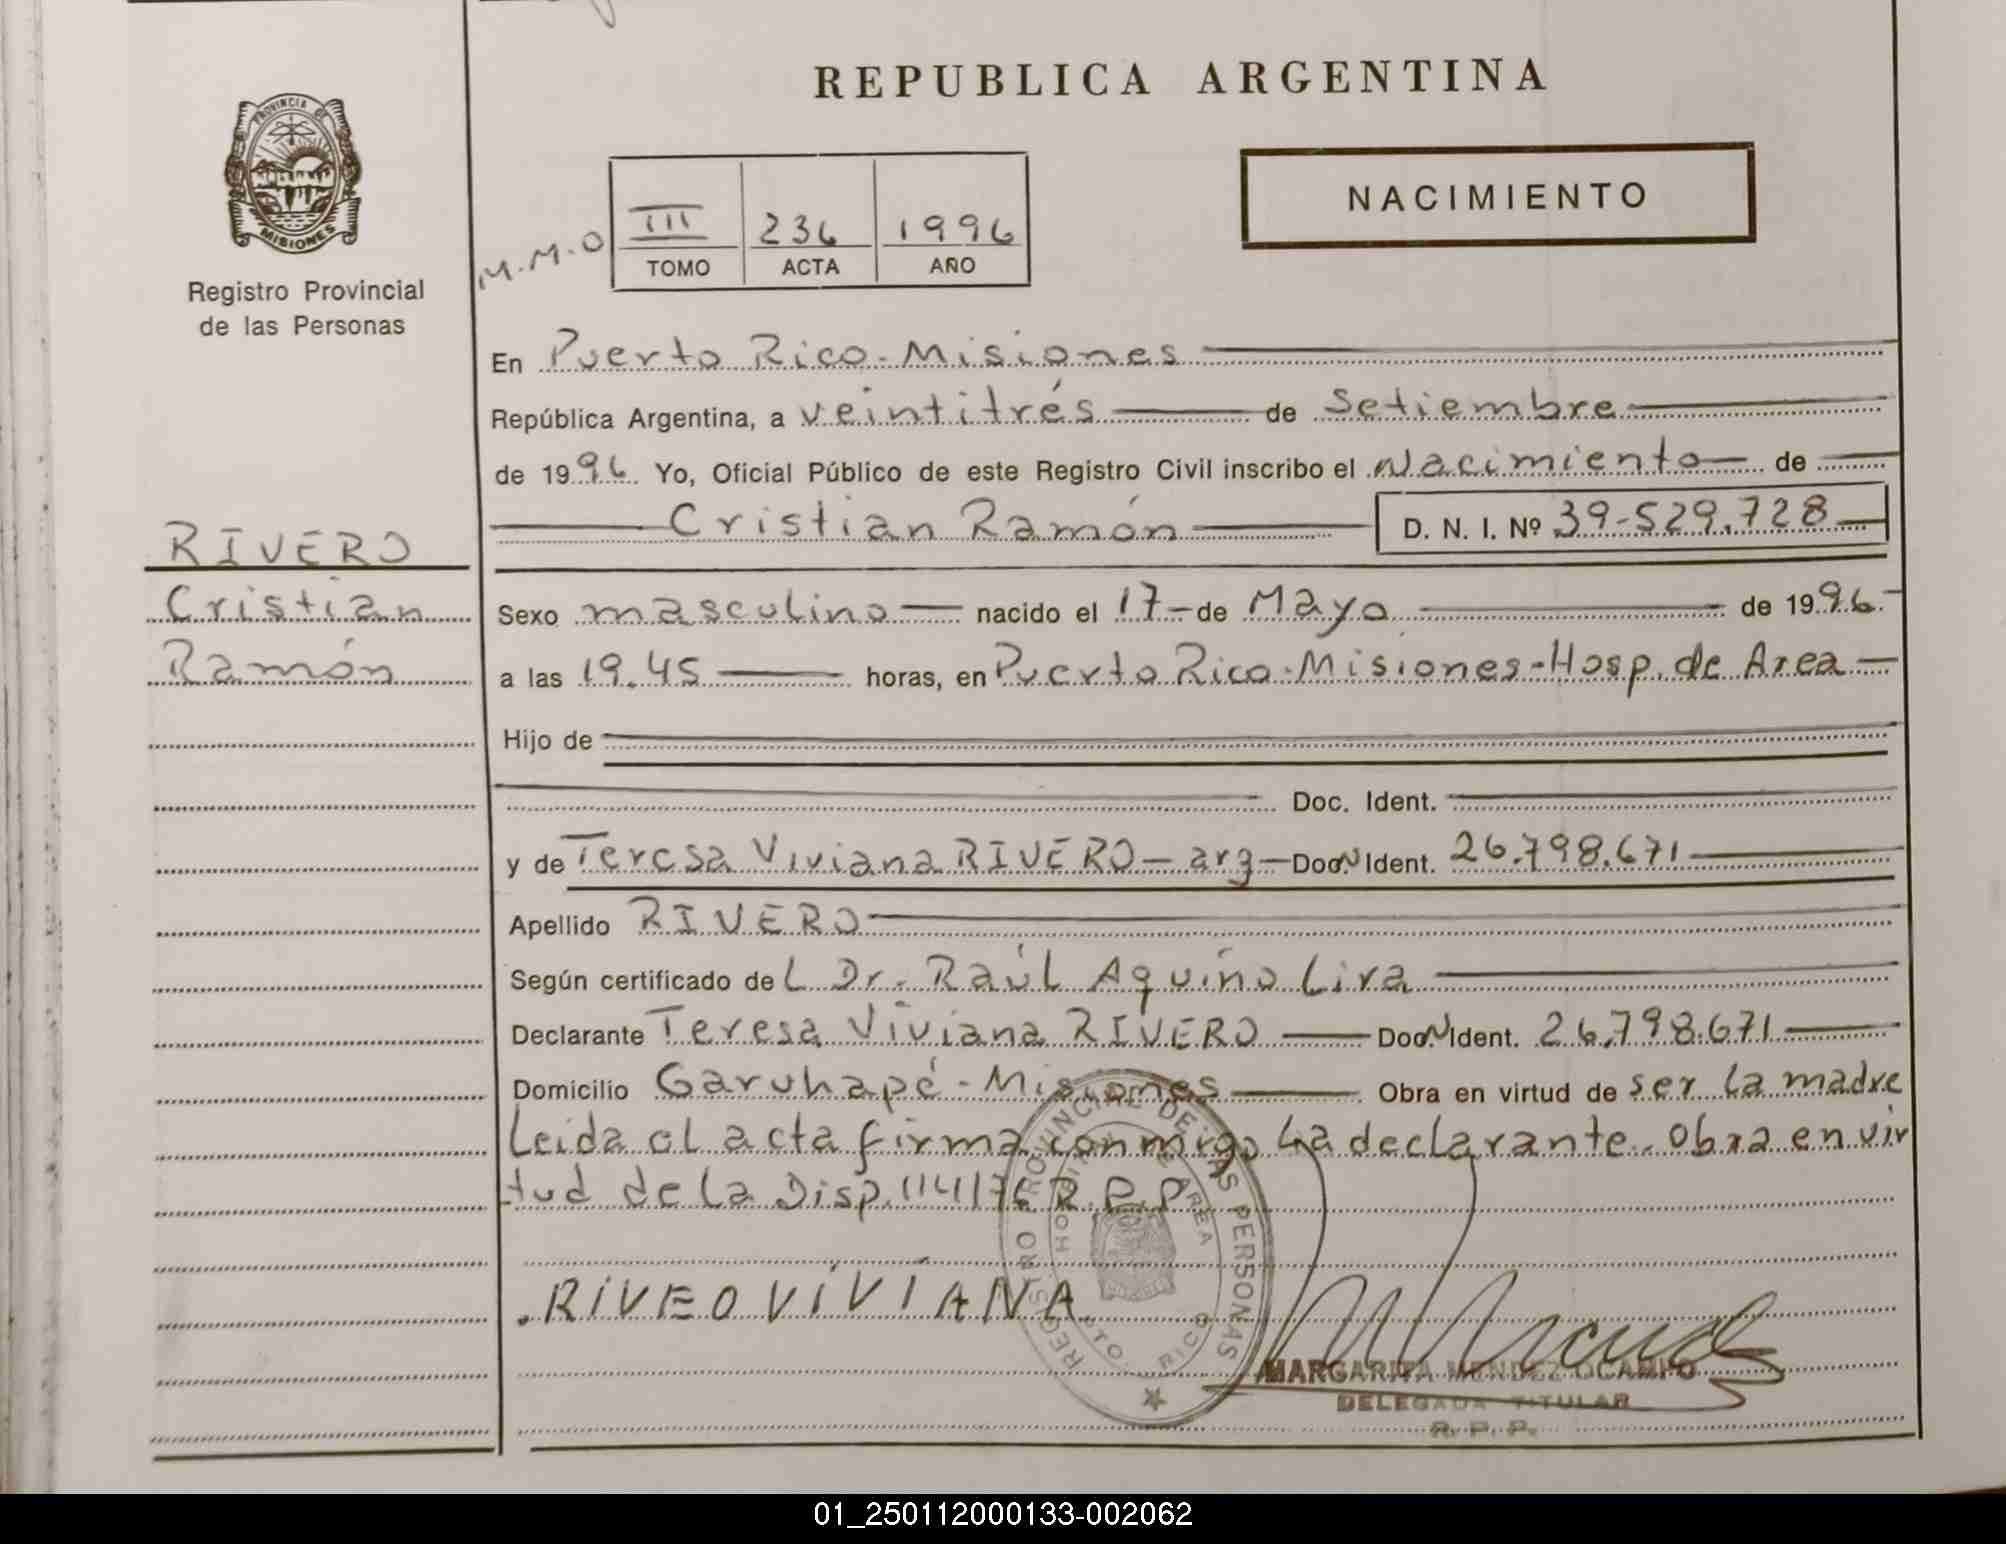 REPUBLICA ARGENTINA
PROVINCIA DE
MISIONES
Registro Provincial
de las Personas
NACIMIENTO
M.M.O
III 236 1996
TOMO ACTA AÑO
En Puerto Rico - Misiones
República Argentina, a veintitrés de Setiembre
de 1996 Yo, Oficial Público de este Registro Civil inscribo el Nacimiento de
Cristian Ramón D. N. I. Nº 39-529.728
RIVERO
Cristian
Ramón
Sexo masculino nacido el 17 de Mayo de 1996
a las 19.45 horas, en Puerto Rico - Misiones - Hosp. de Area
Hijo de
Doc. Ident.
y de Teresa Viviana RIVERO - arg - Doc. N Ident. 26.798.671
Apellido RIVERO
Según certificado de L Dr. Raúl Aquino Lira
Declarante Teresa Viviana RIVERO Doc. N Ident. 26.798.671
Domicilio Garuhapé - Misiones Obra en virtud de ser la madre
Leida el acta firma conmigo la declarante. Obra en vir
tud de la Disp. 114/76 R.P.P
REGISTRO PROVINCIAL DE LAS PERSONAS
HOSPITAL DE AREA
PTO. RICO
. RIVEO VIVIANA
MARGARITA MENDEZ OCAMPO
DELEGADA TITULAR
R. P. P.
01_250112000133-002062